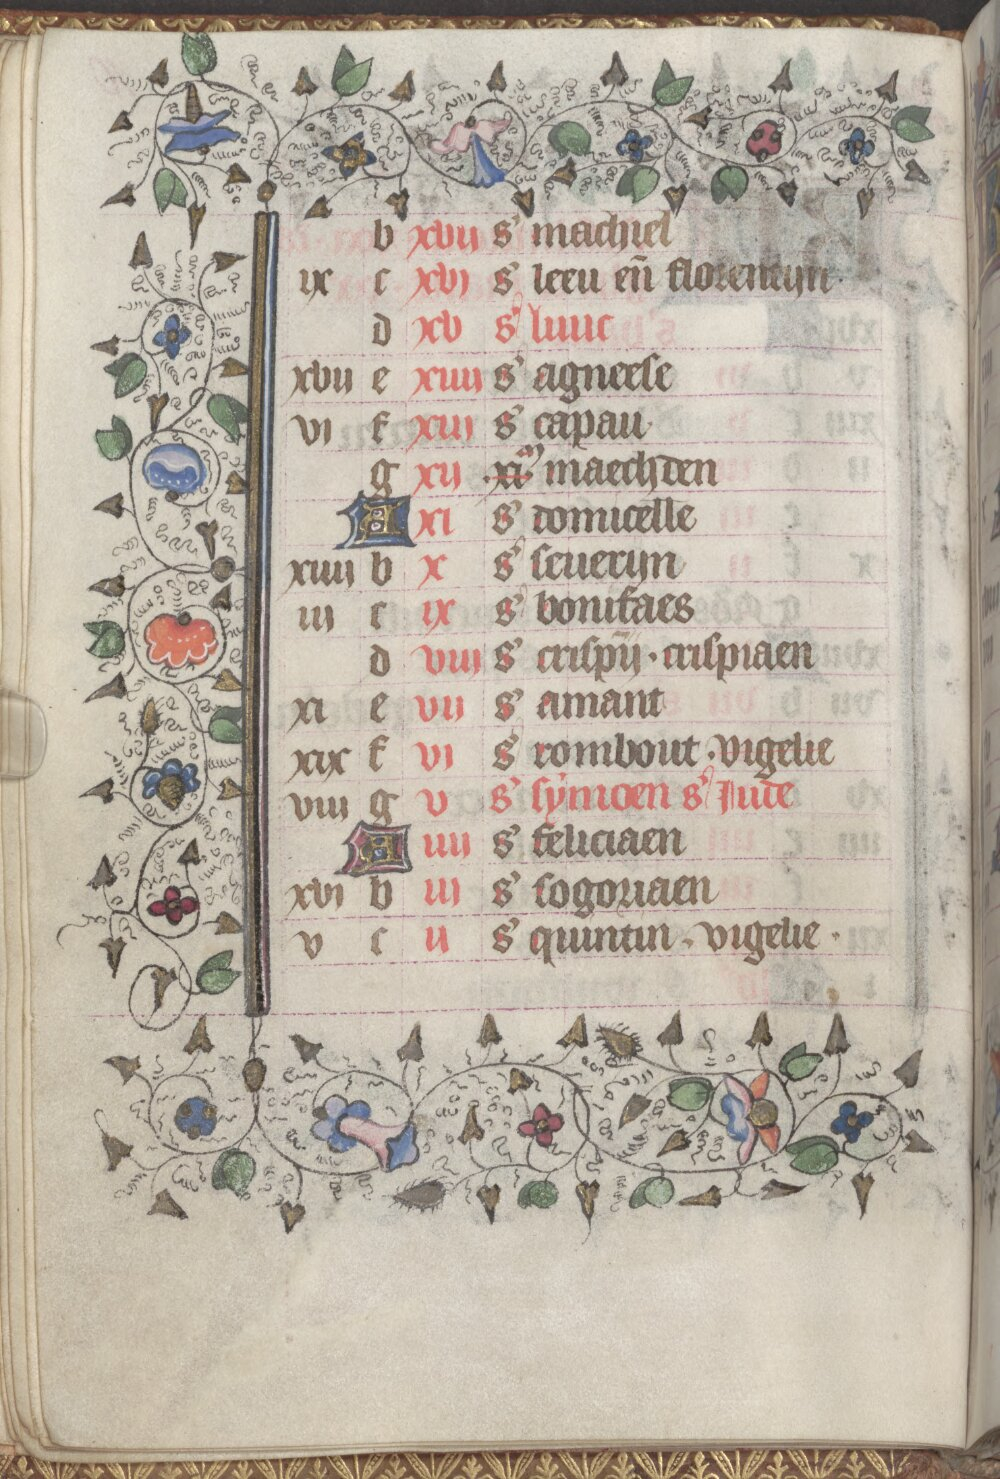 b xvii s' machiel
ix c xvi s' leeu en̄ florentijn·
d xv s' luuc
xvii e xiiii s' agneese
vi f xiii s' capau
g xii ·xi·ᵐ maechden
A xi s' domicelle
xiiii b x s' seuerijn
iii c ix s' bonifaes
d viii s' crispīj · crispiaen
xi e vii s' amant
xix f vi s' rombout · vigelie
viii g v s' sijmoen s' Jude
A iiii s' feliciaen
xvi b iii s' sogoriaen
v c ii s' quintin · vigelie ·